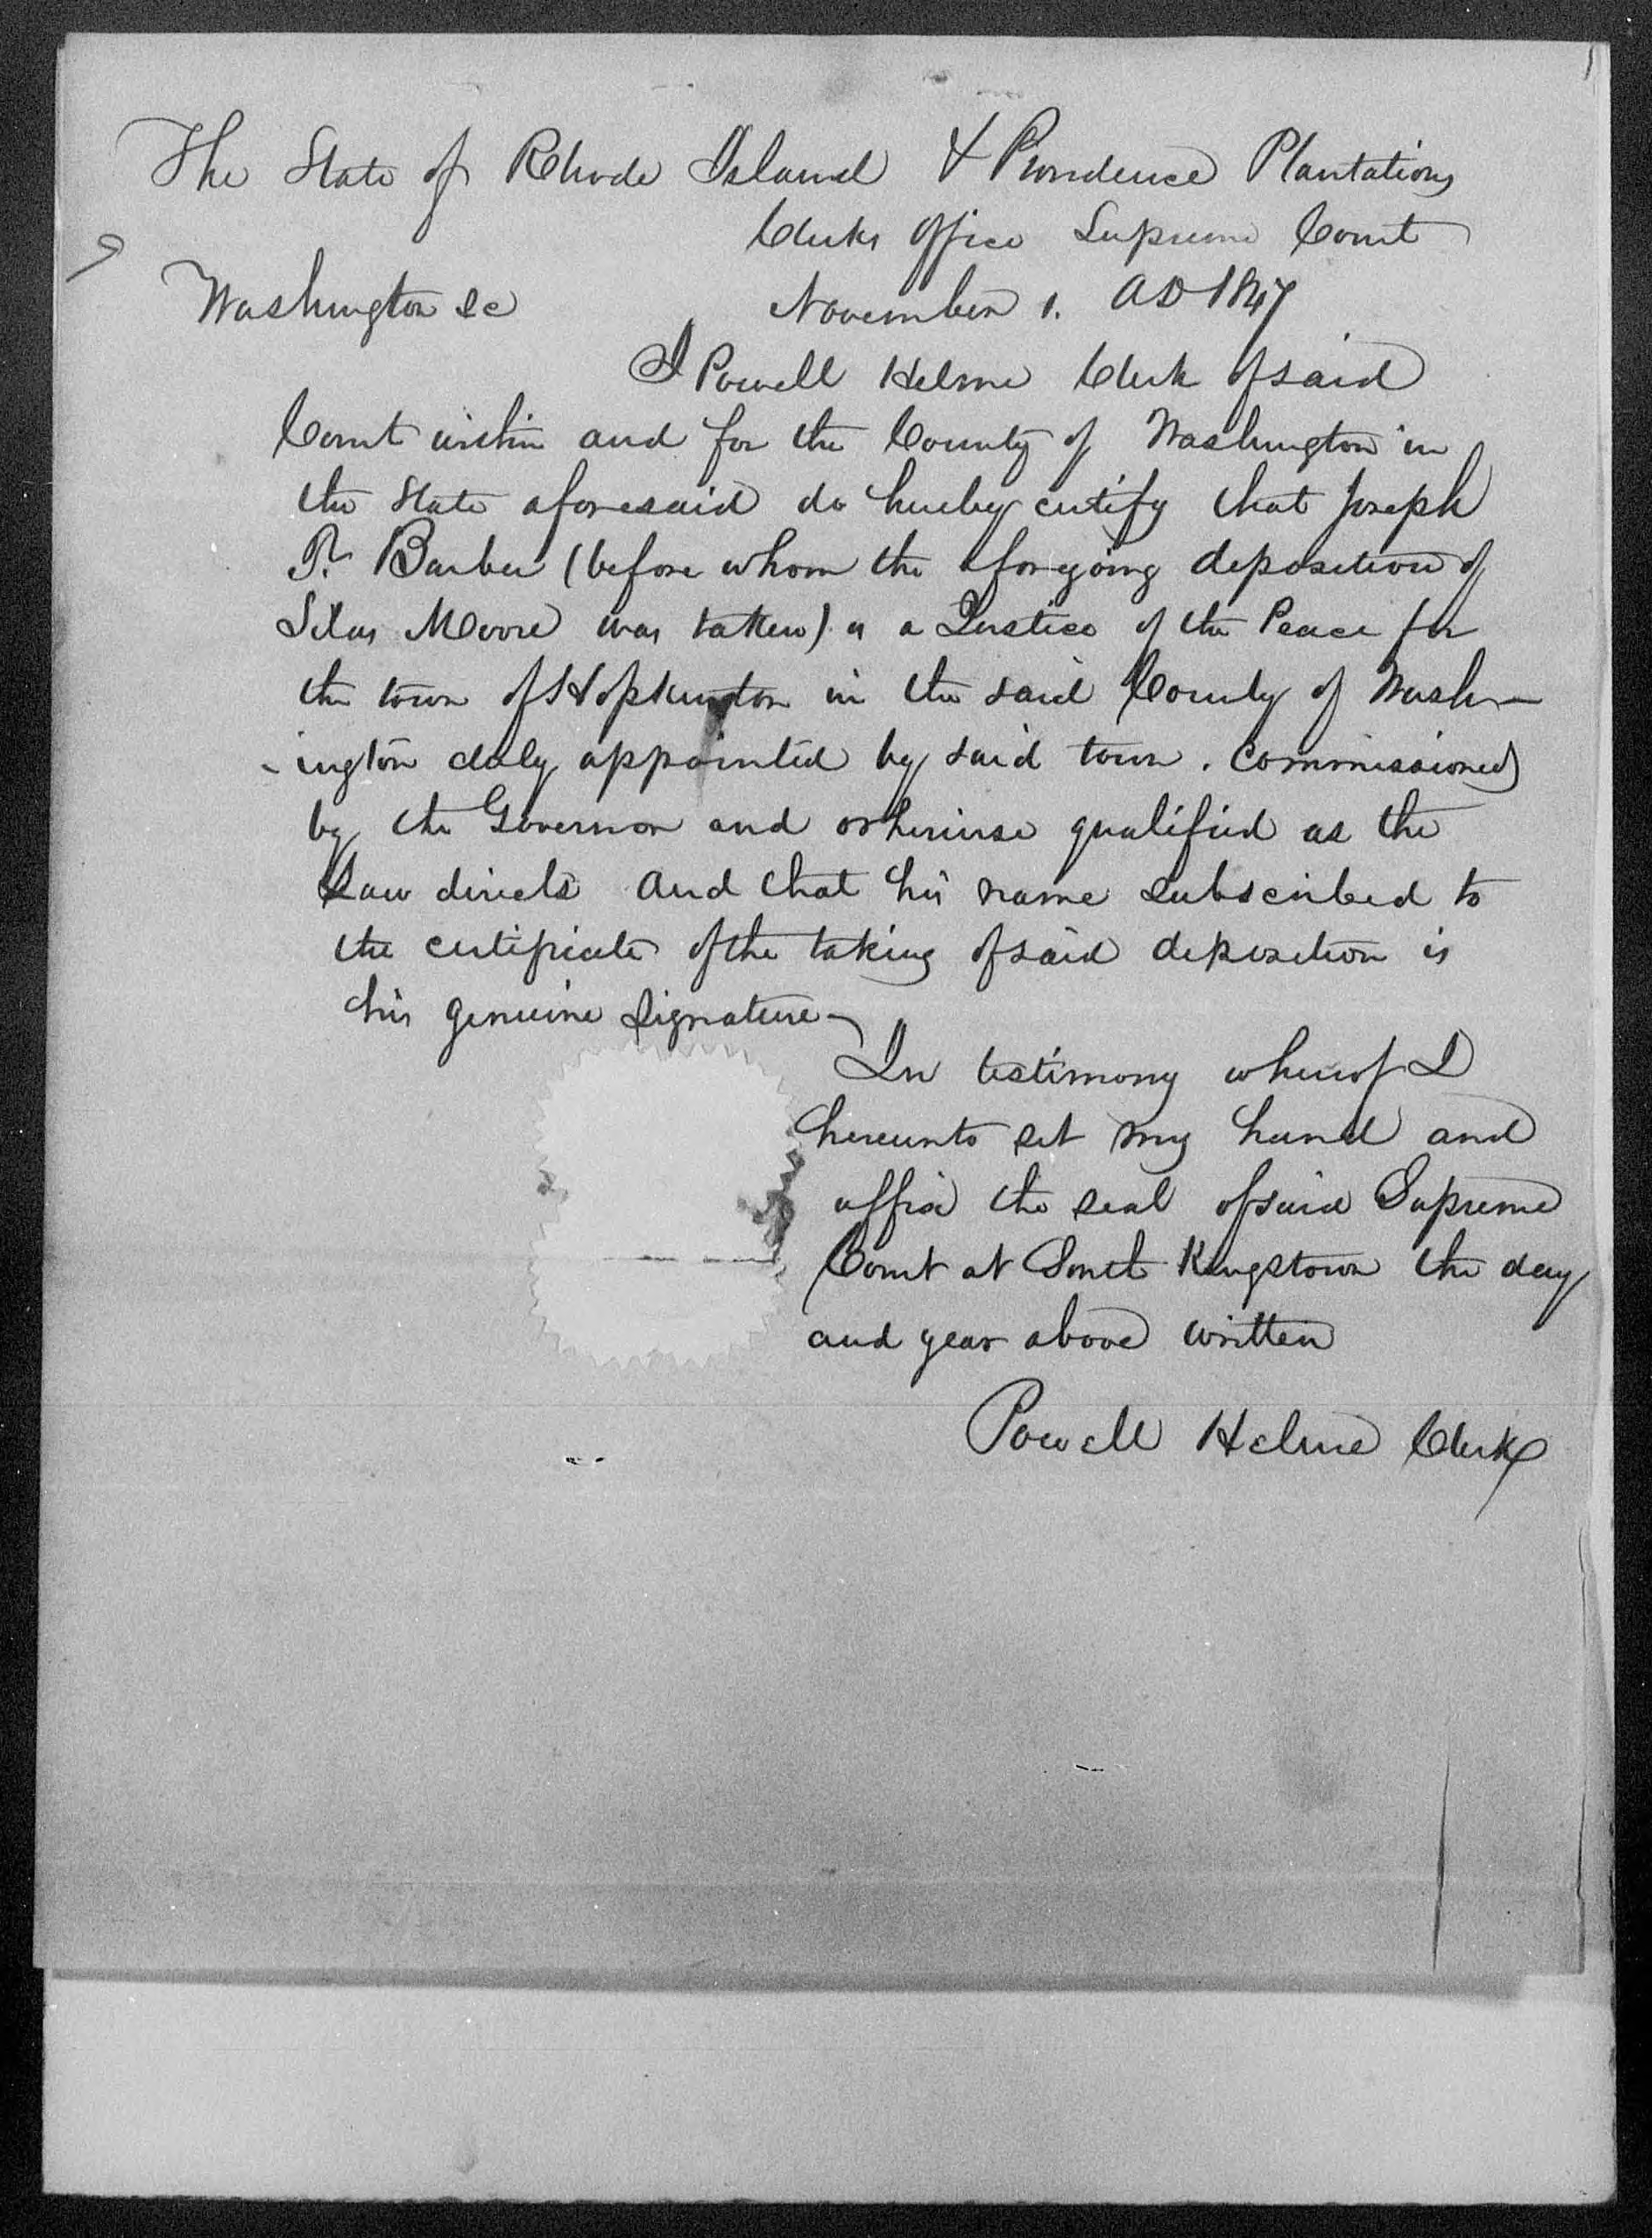 The State of Rhode Island & Providence Plantations
Clerks Office Supreme Court
Washington sc
November 1. AD 1847
I Powell Helme Clerk of said
Court within and for the County of Washington in
the State aforesaid do hereby certify that Joseph
T. Barber (before whom the aforegoing deposition of
Silas Moore was taken) is a Justice of the Peace for
the town of Hopkinton in the said County of Wash-
-ington duly appointed by said town. Commissioned
by the Governor and otherwise qualified as the
Law directs and that his name subscribed to
the certificate of the taking of said deposition is
his genuine signature
In testimony whereof I
hereunto set my hand and
affix the seal of said Supreme
Court at South Kingstown the day
and year above written
Powell Helme Clerk